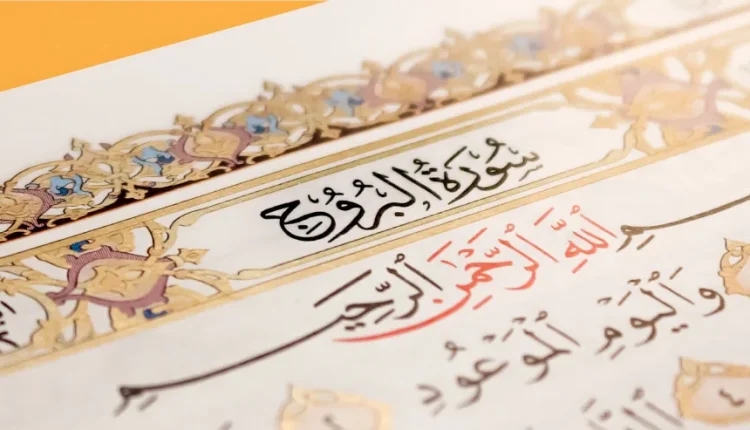 سُورَةُ الْبُرُوجِ
ـمِ اللَّهِ الرَّحْمَٰنِ الرَّحِيمِ
وَالْيَوْمِ الْمَوْعُودِ ٢
٤